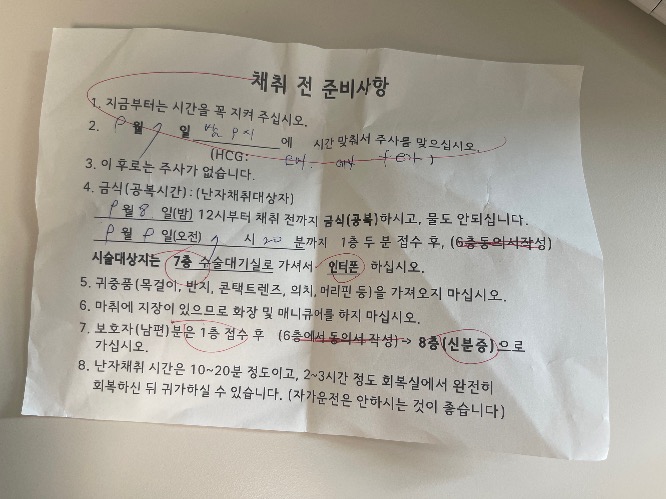 채취 전 준비사항
1. 지금부터는 시간을 꼭 지켜 주십시오.
2. 9월 7일 밤 9시 에 시간 맞춰서 주사를 맞으십시오.
(HCG: )
3. 이 후로는 주사가 없습니다.
4. 금식(공복시간):(난자채취대상자)
9월 8일(밤) 12시부터 채취 전까지 금식(공복)하시고, 물도 안되십니다.
9월 9일(오전) 7시 20분까지 1층 두 분 접수 후, (6층동의서작성)
시술대상자는 7층 수술대기실로 가셔서 인터폰 하십시오.
5. 귀중품(목걸이, 반지, 콘택트렌즈, 의치, 머리핀 등)을 가져오지 마십시오.
6. 마취에 지장이 있으므로 화장 및 매니큐어를 하지 마십시오.
7. 보호자(남편)분은 1층 접수 후 (6층에서 동의서 작성)→ 8층(신분증)으로
가십시오.
8. 난자채취 시간은 10~20분 정도이고, 2~3시간 정도 회복실에서 완전히
회복하신 뒤 귀가하실 수 있습니다. (자가운전은 안하시는 것이 좋습니다)